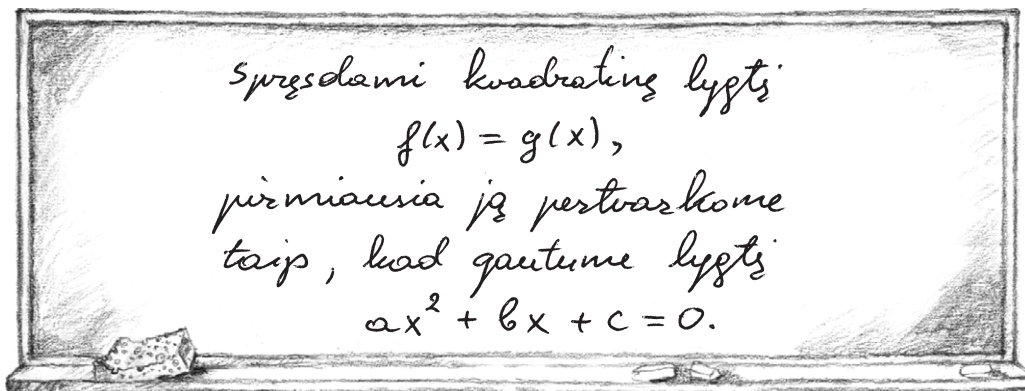 spręsdami kvadratinę lygtį
f(x) = g(x),
pirmiausia ją pertvarkome
taip, kad gautume lygtį
ax² + bx + c = 0.